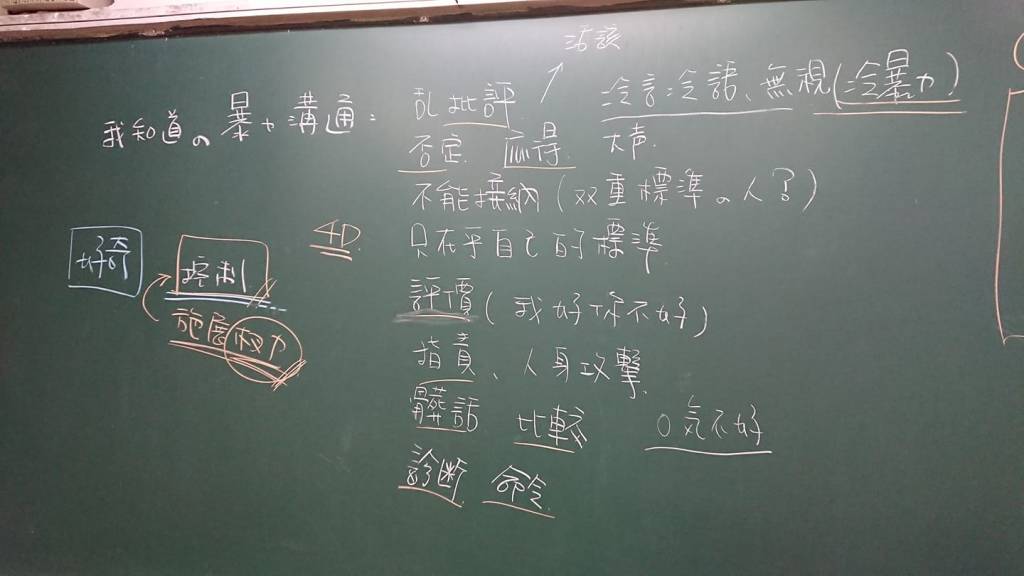 活該
我知道の暴力溝通:
乱批評
冷言冷語、無視(冷暴力)
否定 應得 大声
不能接納(双重標準の人?)
4D
只在乎自己的標準
好奇
控制
施展权力
評價(我好你不好)
指責、人身攻擊
髒話 比較 口気不好
診断 命令